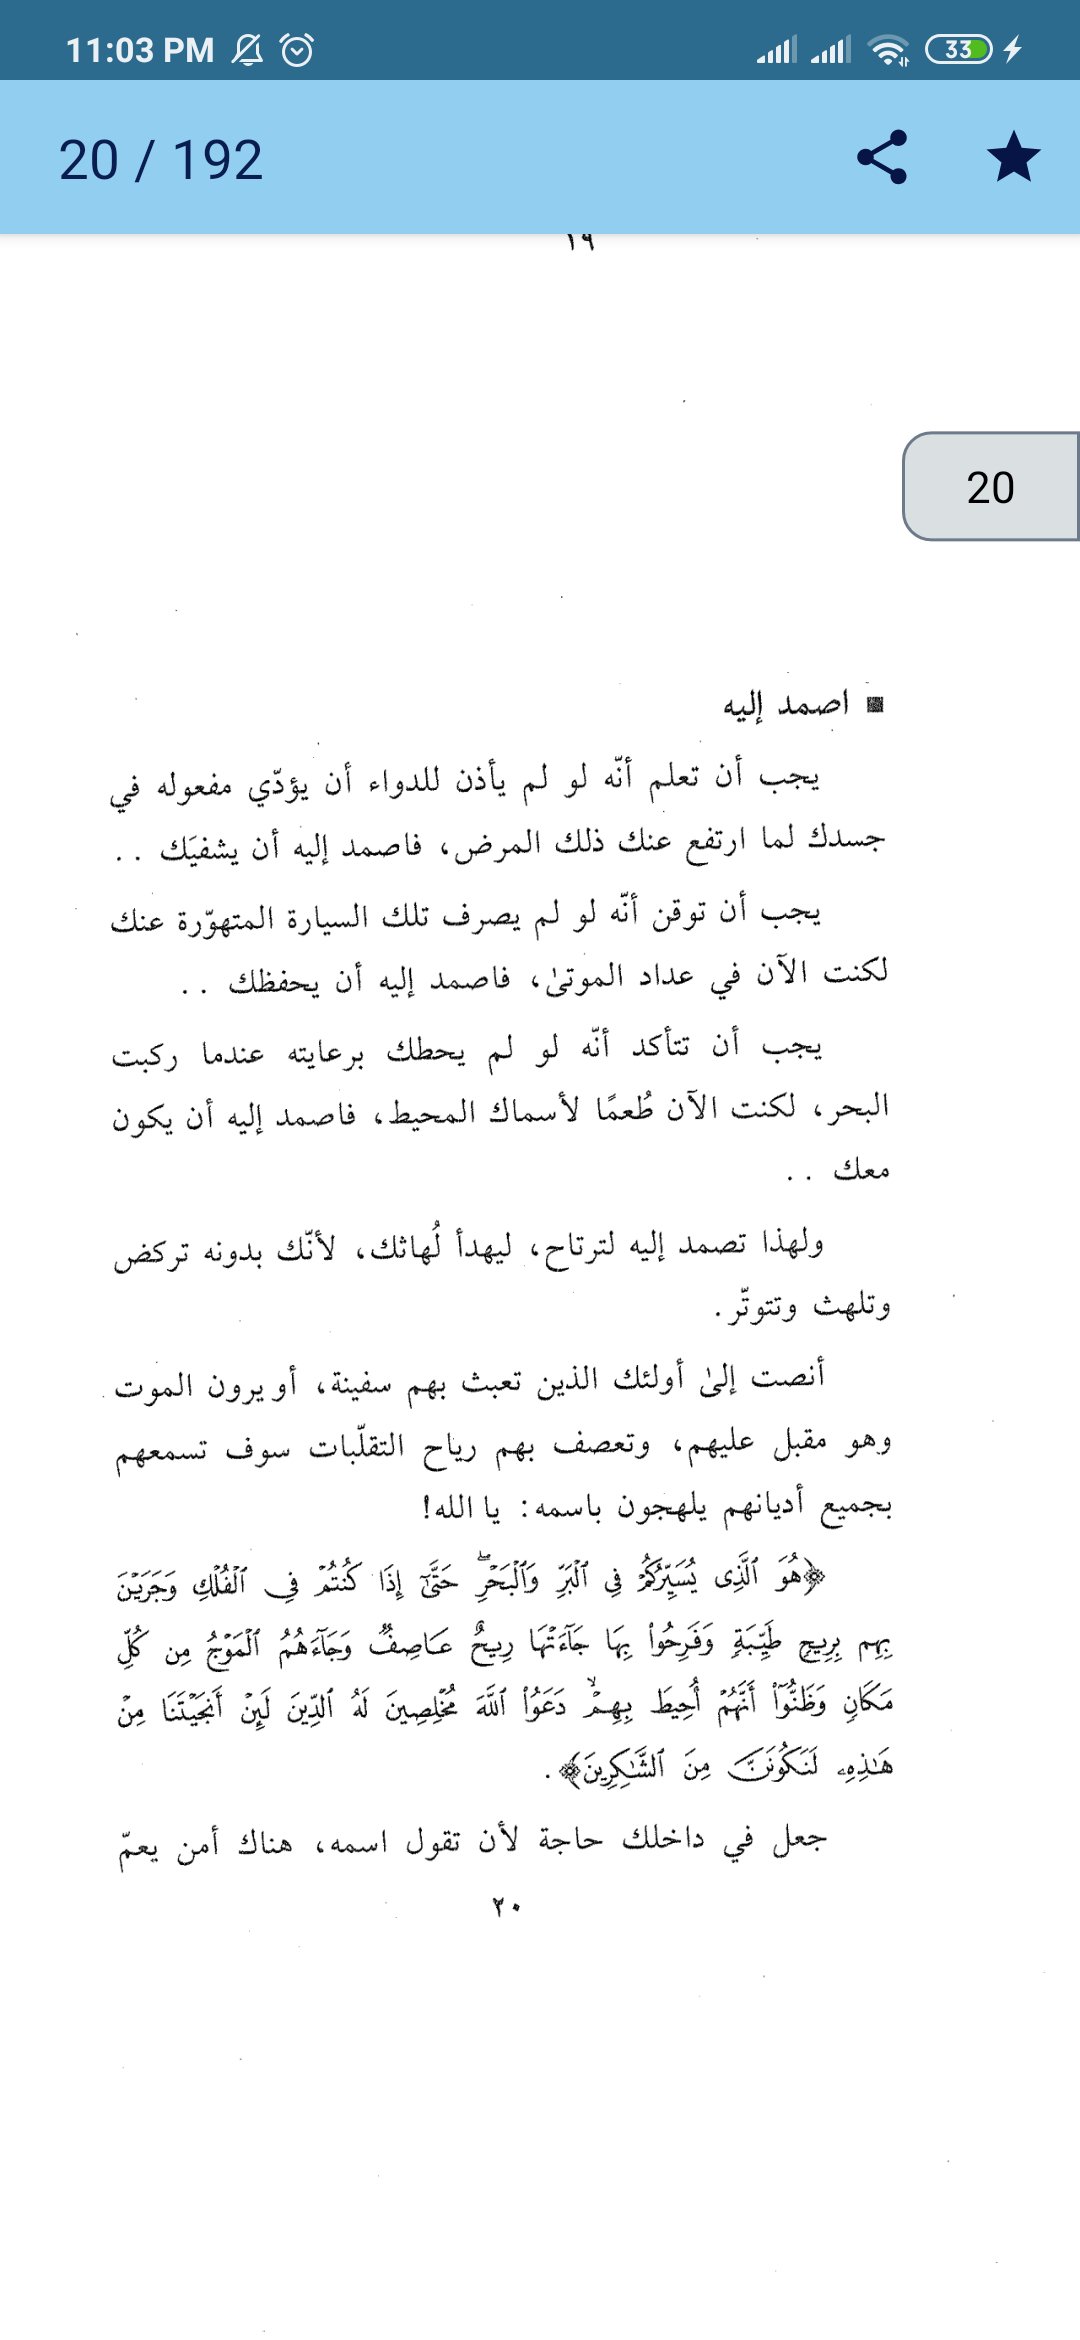 11:03 PM
33
20 / 192
١٩
20
اصمد إليه
يجب أن تعلم أنّه لو لم يأذن للدواء أن يؤدّي مفعوله في
جسدك لما ارتفع عنك ذلك المرض، فاصمد إليه أن يشفيَك . .
يجب أن توقن أنّه لو لم يصرف تلك السيارة المتهوّرة عنك
لكنت الآن في عداد الموتىٰ، فاصمد إليه أن يحفظك . .
يجب أن تتأكد أنّه لو لم يحطك برعايته عندما ركبت
البحر، لكنت الآن طُعمًا لأسماك المحيط، فاصمد إليه أن يكون
معك . .
ولهذا تصمد إليه لترتاح، ليهدأ لُهاثك، لأنّك بدونه تركض
وتلهث وتتوتّر.
أنصت إلىٰ أولئك الذين تعبث بهم سفينة، أو يرون الموت
وهو مقبل عليهم، وتعصف بهم رياح التقلّبات سوف تسمعهم
بجميع أديانهم يلهجون باسمه: يا الله!
﴿هُوَ ٱلَّذِى يُسَيِّرُكُمْ فِى ٱلْبَرِّ وَٱلْبَحْرِ ۖ حَتَّىٰٓ إِذَا كُنتُمْ فِى ٱلْفُلْكِ وَجَرَيْنَ
بِهِم بِرِيحٍ طَيِّبَةٍ وَفَرِحُوا۟ بِهَا جَآءَتْهَا رِيحٌ عَاصِفٌ وَجَآءَهُمُ ٱلْمَوْجُ مِن كُلِّ
مَكَانٍ وَظَنُّوٓا۟ أَنَّهُمْ أُحِيطَ بِهِمْ ۙ دَعَوُا۟ ٱللَّهَ مُخْلِصِينَ لَهُ ٱلدِّينَ لَئِنْ أَنجَيْتَنَا مِنْ
هَـٰذِهِۦ لَنَكُونَنَّ مِنَ ٱلشَّـٰكِرِينَ﴾.
جعل في داخلك حاجة لأن تقول اسمه، هناك أمن يعمّ
٢٠